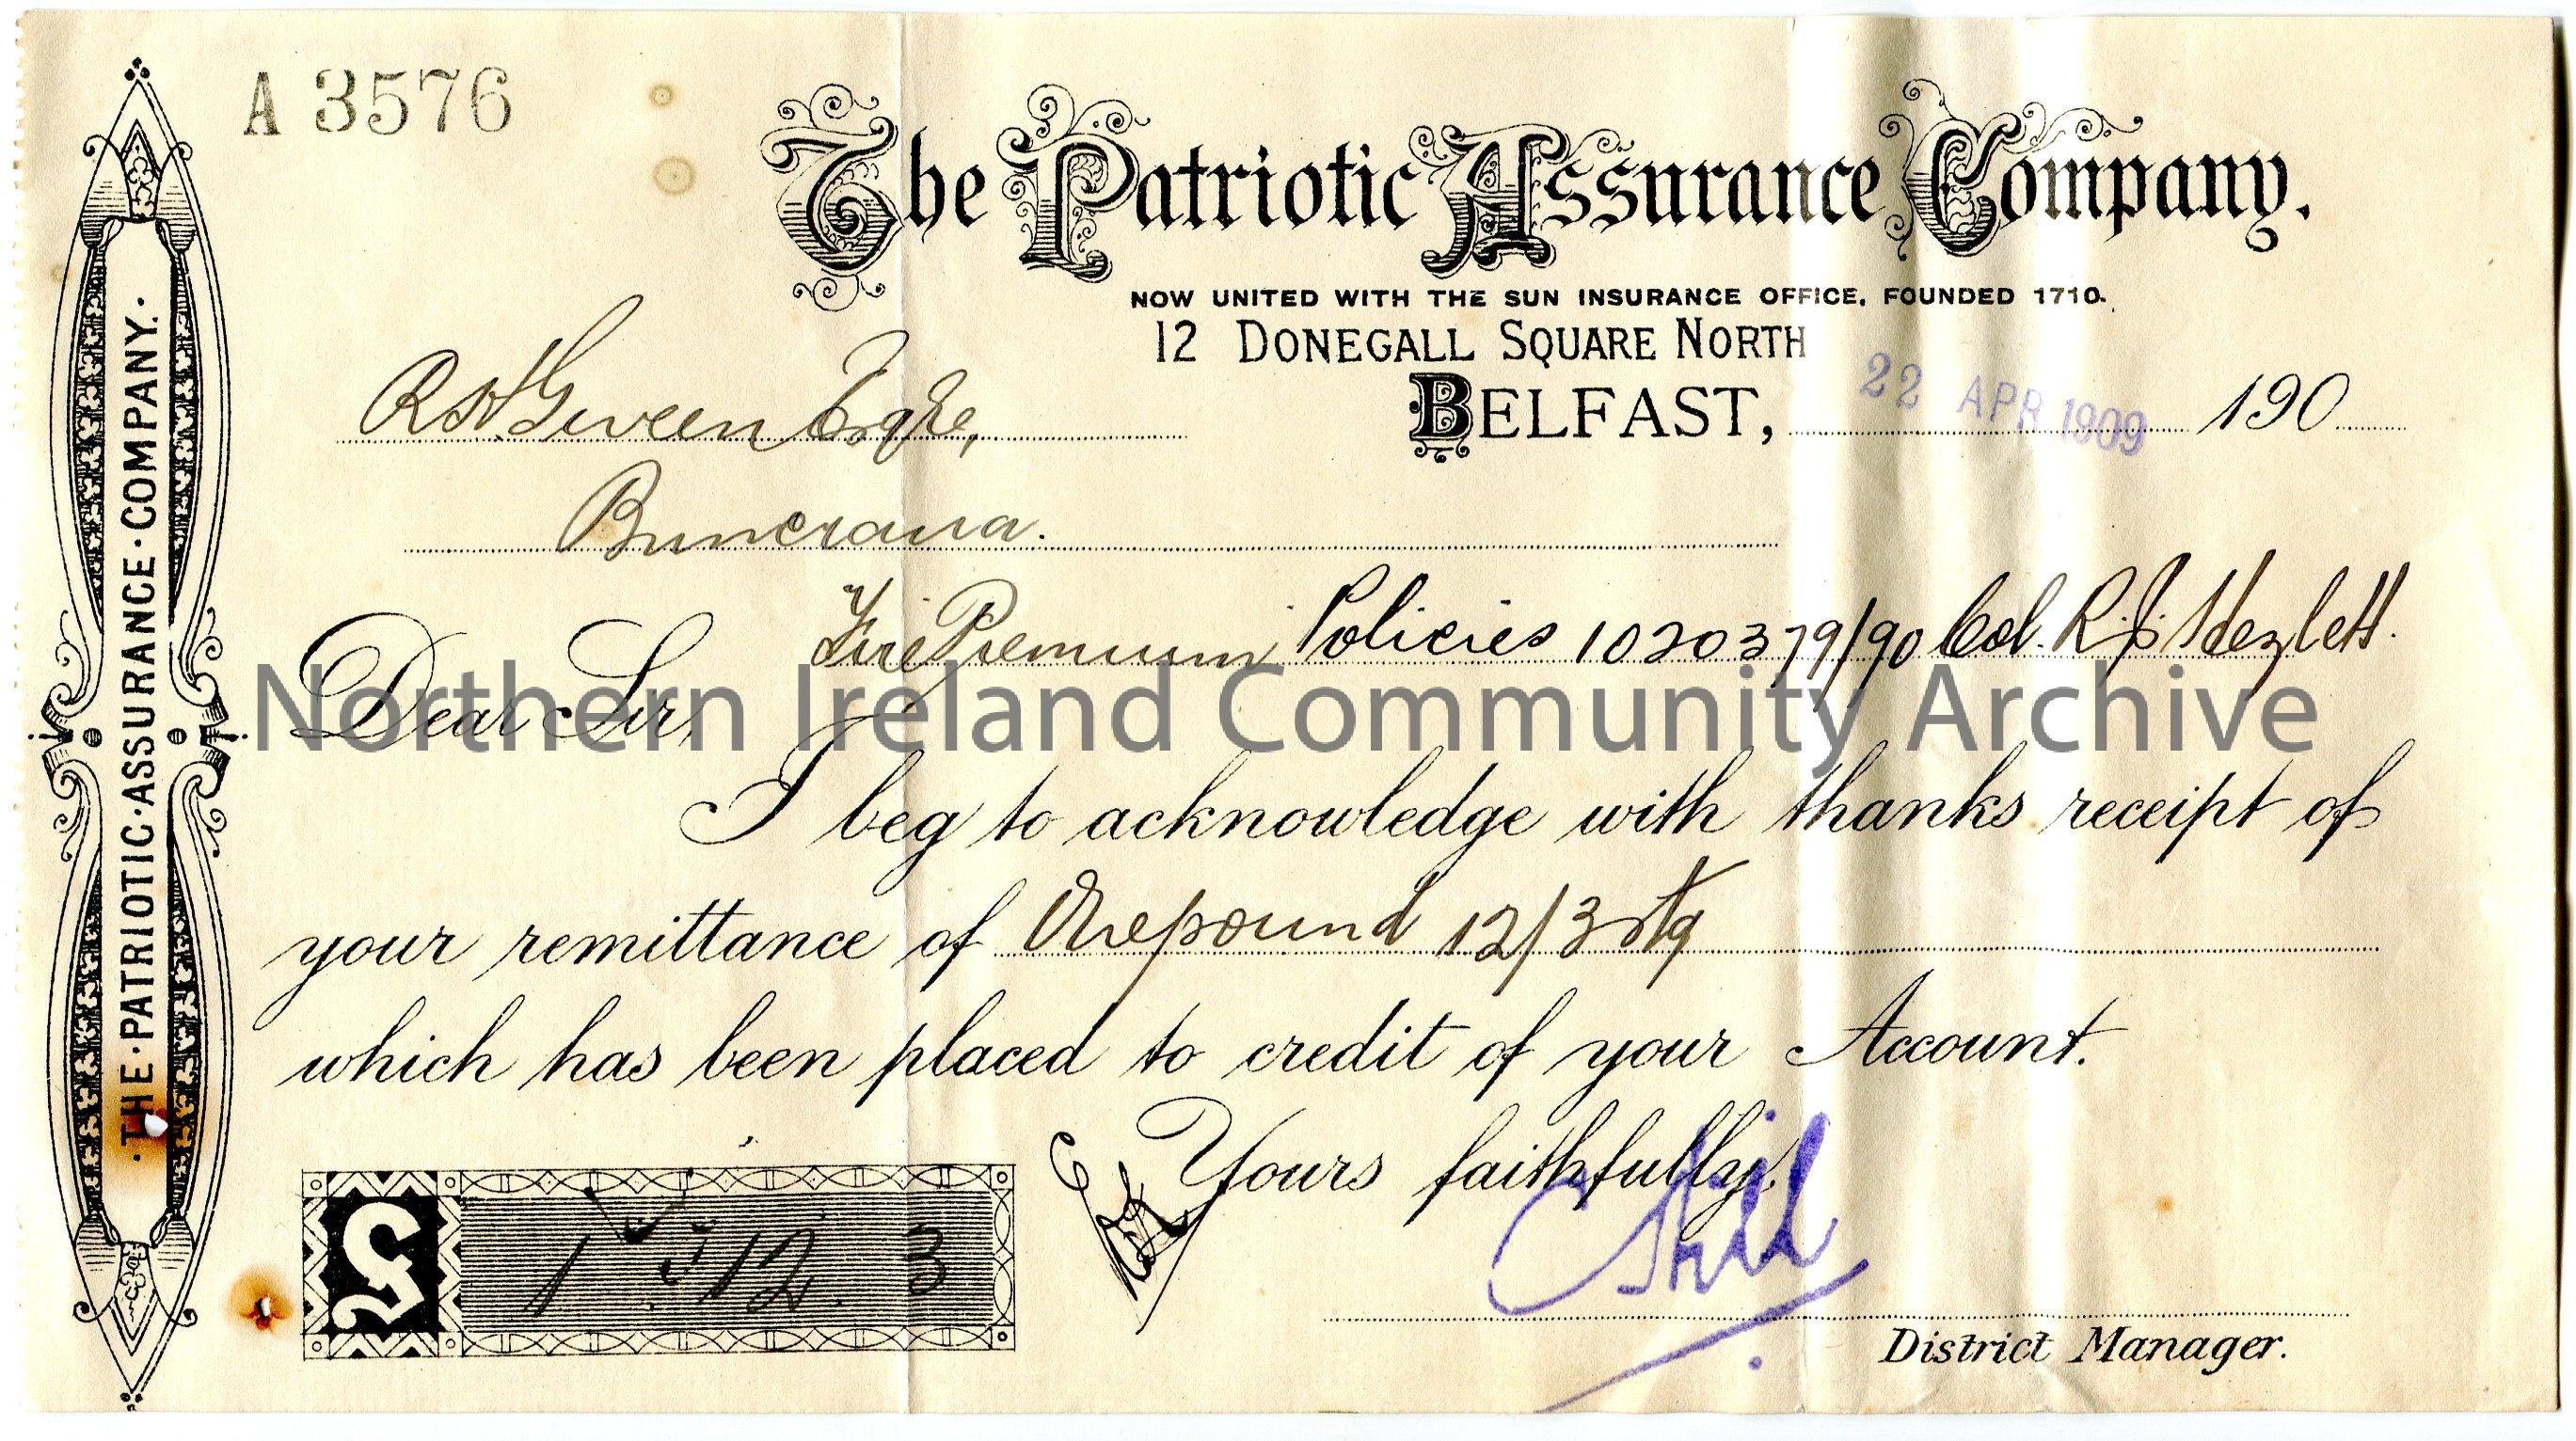 A 3576
The Patriotic Assurance Company.
NOW UNITED WITH THE SUN INSURANCE OFFICE, FOUNDED 1710.
12 DONEGALL SQUARE NORTH
BELFAST, 22 APR 1909 190
Esqre,
Buncrana.
Fire Premium Policies 1020379/90 Col. R. J. Hezlett.
Dear Sir,
I beg to acknowledge with thanks receipt of
your remittance of One pound 12/3 stg
which has been placed to credit of your Account.
Yours faithfully,
£ 1 " 12 . 3
District Manager.
·THE·PATRIOTIC·ASSURANCE·COMPANY·
Northern Ireland Community Archive